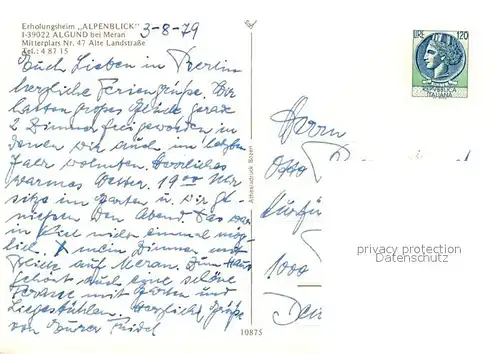 Erholungsheim „ALPENBLICK"
I-39022 ALGUND bei Meran
Mitterplatz Nr. 47 Alte Landstraße
Tel.: 4 87 15
3-8-79
Euch Lieben in Berlin
herzliche Feriengrüße. Wir
hatten großes Glück gerade
2 Zimmer frei geworden in
denen wir auch im letzten
Jahr wohnten. Herrliches
warmes Wetter. 19 00 Uhr
sitze im Garten u. wir ge
nießen den Abend. Das war
in Kiel nicht einmal mög
lich. X mein Zimmer mit
Blick auf Meran. Zum Haus
gehört auch eine schöne
Terasse mit Garten und
Liegestühlen. Herzliche Grüße
von Eurer Friedel
LIRE 120
REPVBBLICA
ITALIANA
Herrn
Otto
Kurfü
1000
privacy protection
Datenschutz
10875